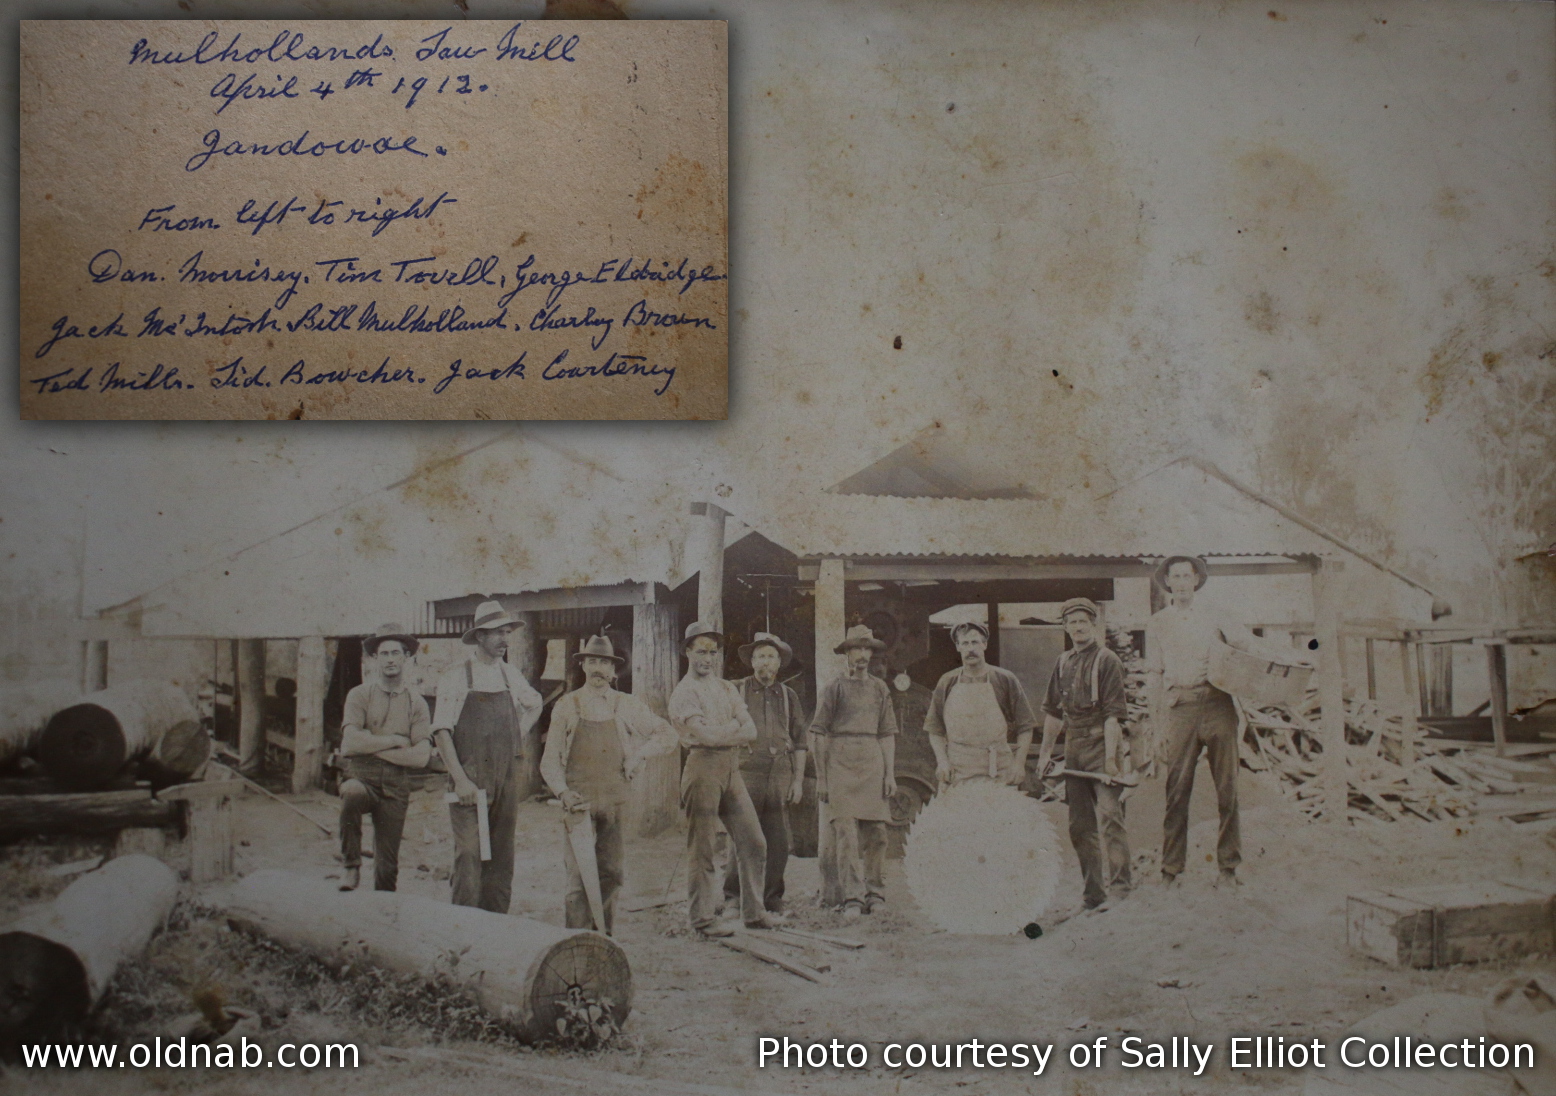 Mulhollands Saw Mill
April 4th 1912.
Jandowae.
From left to right
Dan. Morrisey, Tim Tovell, George Eldridge.
Jack Mc'Intosh. Bill Mulholland. Charley Brown
Ted Mills. Sid. Bowcher. Jack Courteney
www.oldnab.com
Photo courtesy of Sally Elliot Collection